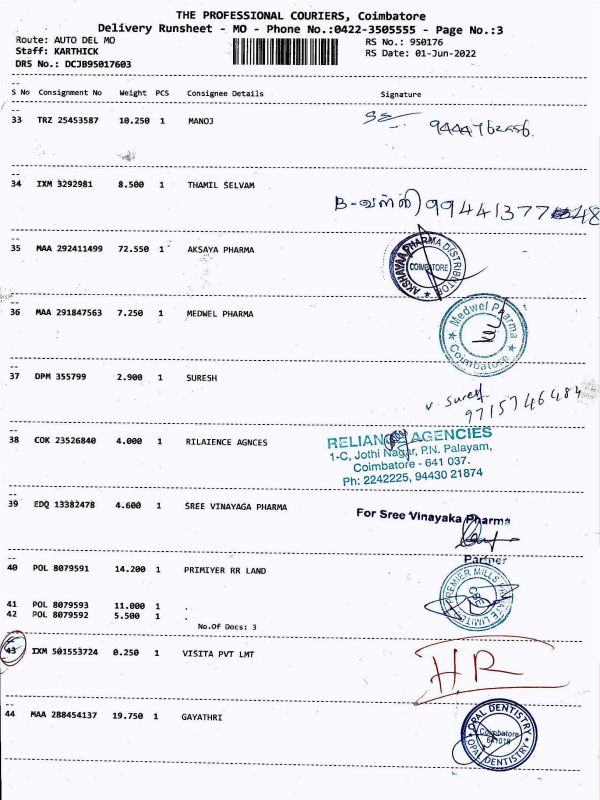 THE PROFESSIONAL COURIERS, Coimbatore
Delivery Runsheet - MO - Phone No.:0422-3505555 - Page No.:3
Route: AUTO DEL MO
Staff: KARTHICK
DRS No.: DCJB95017603
RS No.: 950176
RS Date: 01-Jun-2022
S No Consignment No Weight PCS Consignee Details Signature
33 TRZ 25453587 10.250 1 MANOJ
34 IXM 3292981 8.500 1 THAMIL SELVAM
B-வள்ளி
35 MAA 292411499 72.550 1 AKSAYA PHARMA
AKSHAYAA PHARMA DISTRIBUTOR
COIMBATORE
36 MAA 291847563 7.250 1 MEDWEL PHARMA
Medwel Pharma
Coimbatore
37 DPM 355799 2.900 1 SURESH
V. Suresh
9715746484
38 COK 23526840 4.000 1 RILAIENCE AGNCES
RELIANCE AGENCIES
1-C, Jothi Nagar, P.N. Palayam,
Coimbatore - 641 037.
Ph: 2242225, 94430 21874
39 EDQ 13382478 4.600 1 SREE VINAYAGA PHARMA
For Sree Vinayaka Pharma
Partner
40 POL 8079591 14.200 1 PRIMIYER RR LAND
PREMIER MILLS PRIVATE LIMITED
CBE
41 POL 8079593 11.000 1 .
42 POL 8079592 5.500 1 .
No.Of Docs: 3
43 IXM 501553724 0.250 1 VISITA PVT LMT
HR
44 MAA 288454137 19.750 1 GAYATHRI
OPAL DENTISTRY
Coimbatore
OPAL DENTISTRY